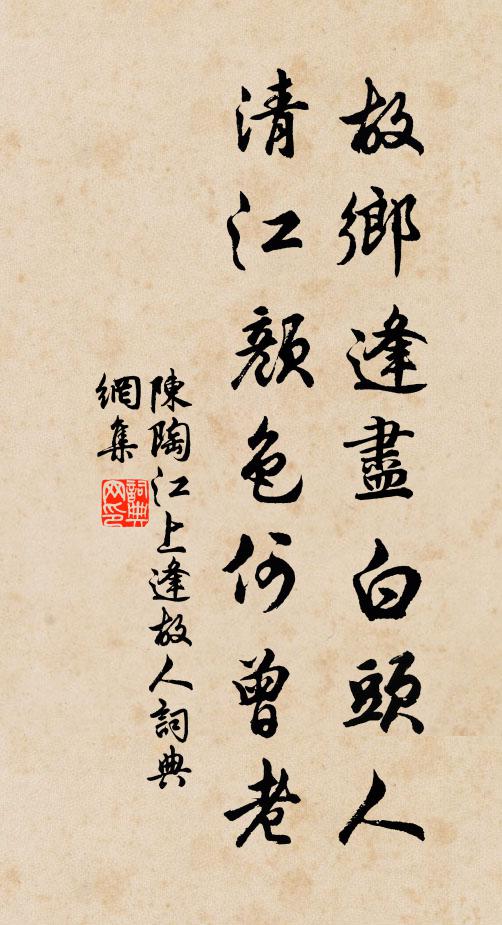 故鄉逢盡白頭人
清江顏色何曾老
陳陶江上逢故人詞典
網集
詞典
网印